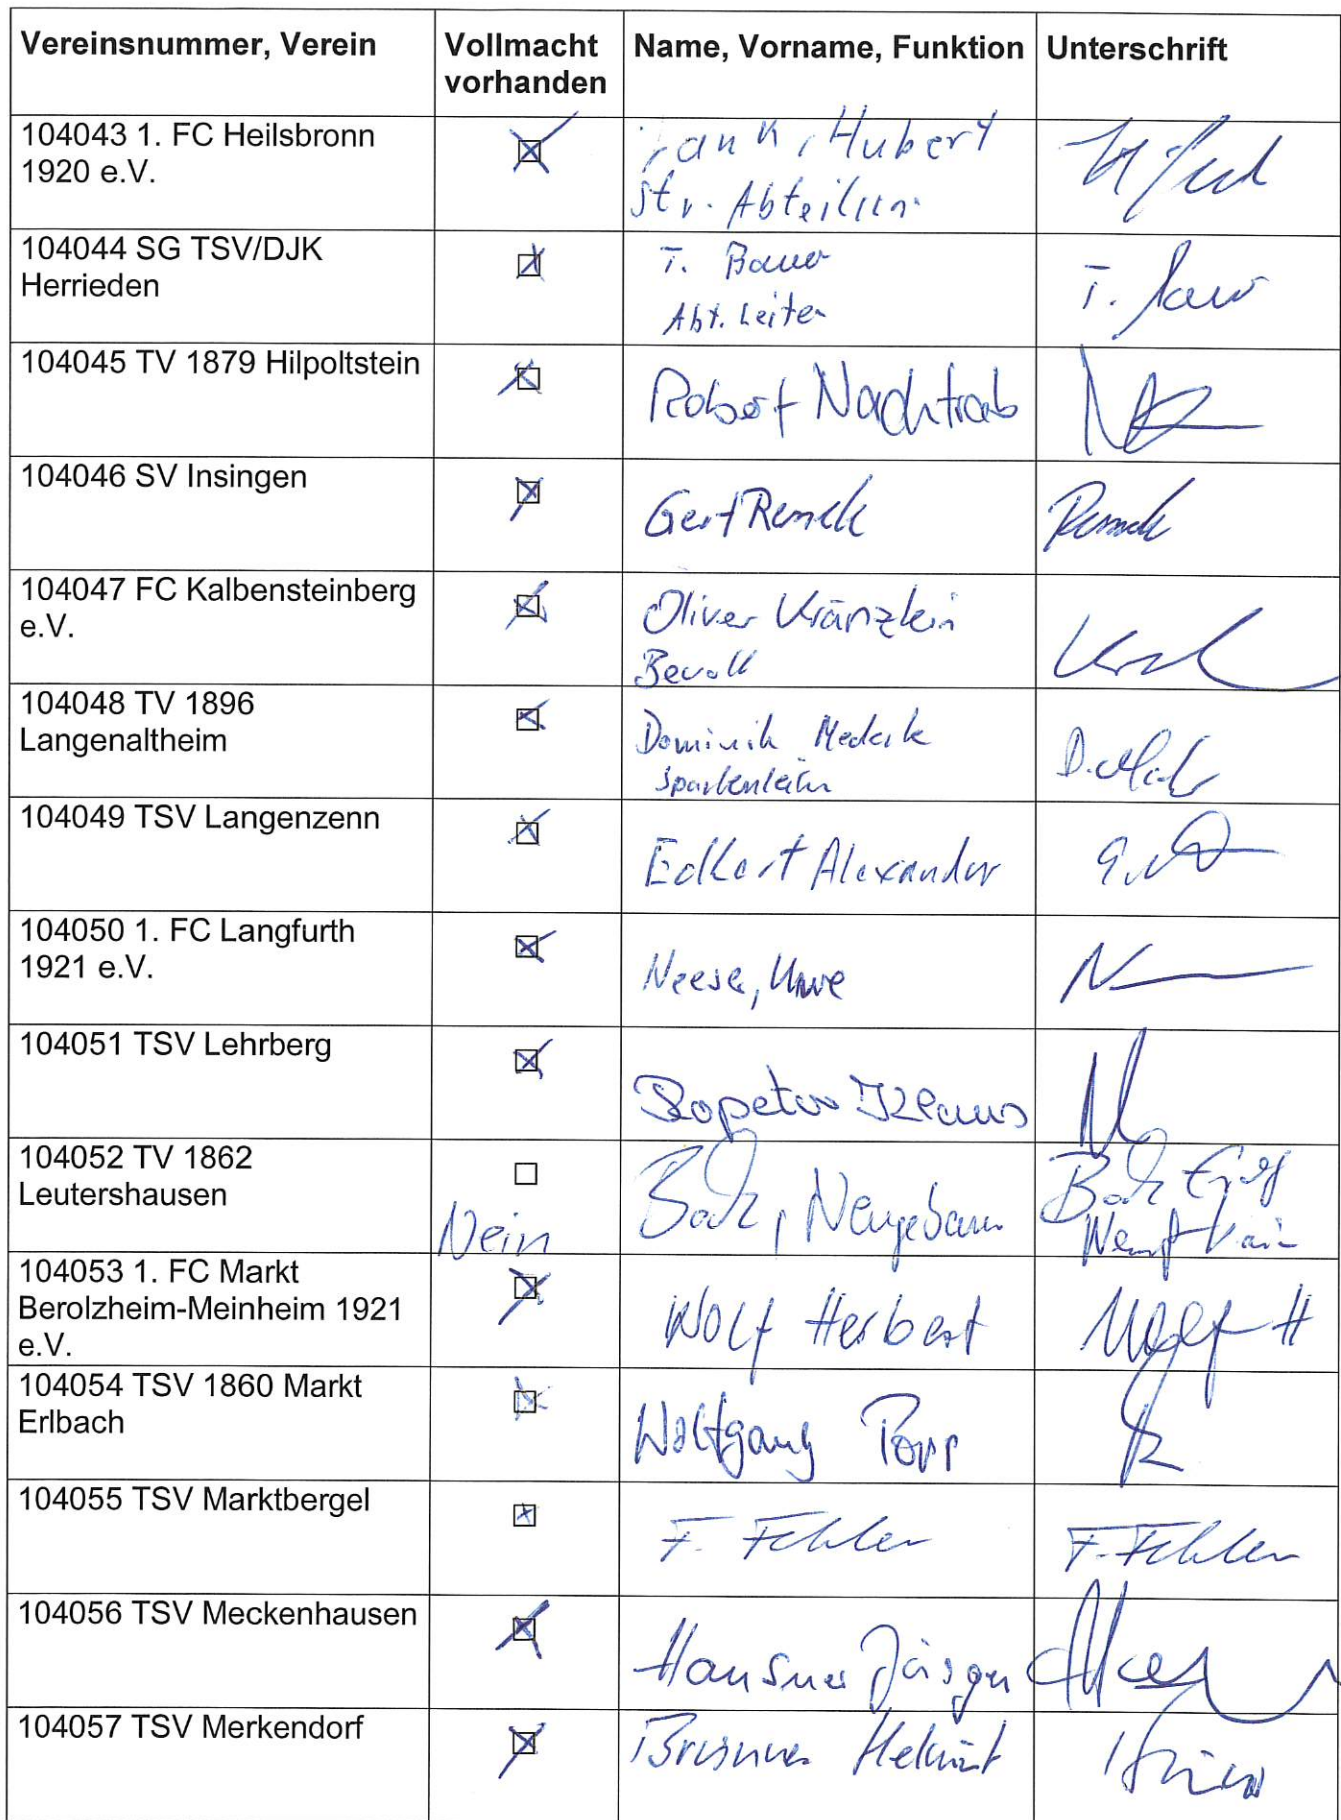 Vereinsnummer, Verein
Vollmacht vorhanden
Name, Vorname, Funktion
Unterschrift
104043 1. FC Heilsbronn
1920 e.V.
Hubert
Abteilun
104044 SG TSV/DJK
Herrieden
T. Bauer
Abt. Leiter
T. Bauer
104045 TV 1879 Hilpoltstein
Robert Nachtrab
104046 SV Insingen
Gert
104047 FC Kalbensteinberg
e.V.
Oliver Kränzlein
Bevoll
104048 TV 1896
Langenaltheim
Dominik
Spartenleiter
104049 TSV Langenzenn
Eckert Alexander
104050 1. FC Langfurth
1921 e.V.
Neese, Uwe
104051 TSV Lehrberg
Klaus
104052 TV 1862
Leutershausen
Nein
104053 1. FC Markt
Berolzheim-Meinheim 1921
e.V.
Wolf Herbert
Wolf H
104054 TSV 1860 Markt
Erlbach
Wolfgang Popp
104055 TSV Marktbergel
F. Fehler
F. Fehler
104056 TSV Meckenhausen
Hausner Jürgen
104057 TSV Merkendorf
Brunner Helmut